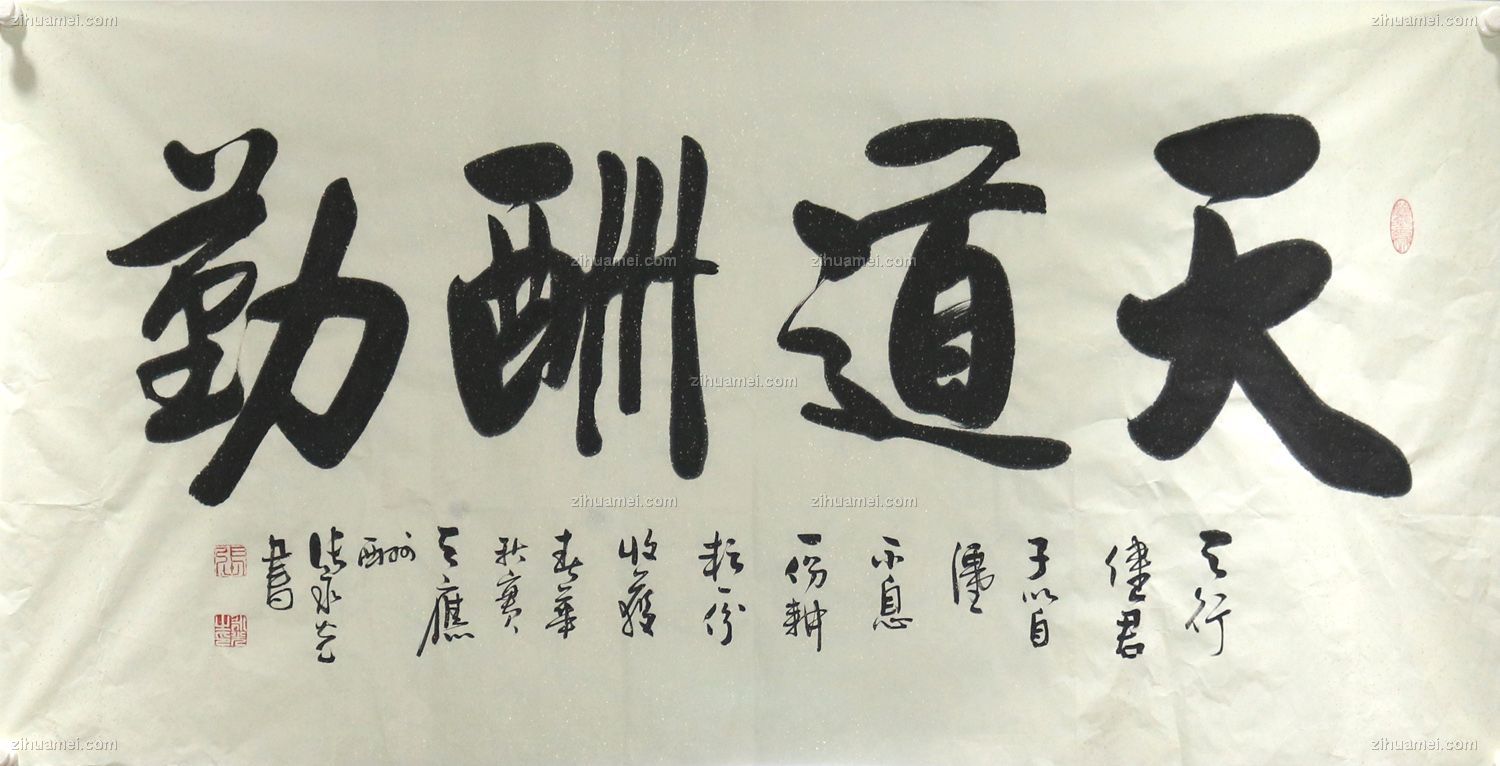 天道酬勤
天行
健君
子以自
彊
不息
一份耕
耘一份
收穫
春華
秋實
天應
酬
張永光
書
張
zihuamei.com
zihuamei.com
zihuamei.com
zihuamei.com
zihuamei.com
zihuamei.com
zihuamei.com
zihuamei.com
zihuamei.com